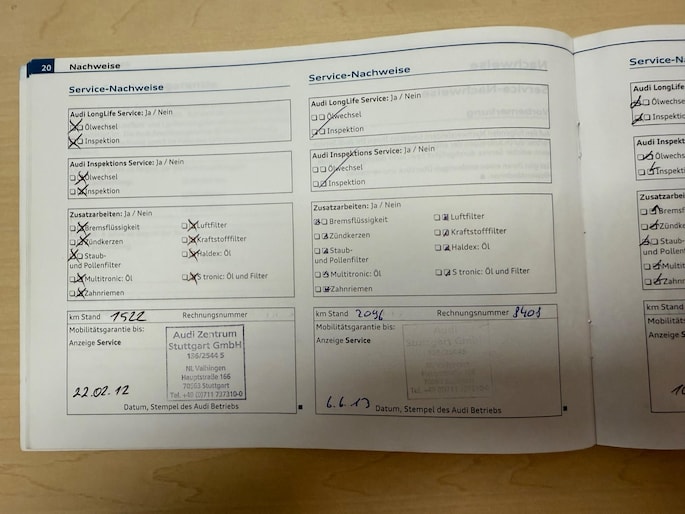 20 Nachweise
Service-Nachweise
Audi LongLife Service: Ja / Nein
Ölwechsel
Inspektion
Audi Inspektions Service: Ja / Nein
Ölwechsel
Inspektion
Zusatzarbeiten: Ja / Nein
Bremsflüssigkeit
Luftfilter
Zündkerzen
Kraftstofffilter
Staub-
und Pollenfilter
Haldex: Öl
Multitronic: Öl
S tronic: Öl und Filter
Zahnriemen
km Stand 1522 Rechnungsnummer
Mobilitätsgarantie bis:
Anzeige Service
Audi Zentrum
Stuttgart GmbH
136/2544 S
NL Vaihingen
Hauptstraße 166
70563 Stuttgart
Tel. +49 (0)711 737310-0
22.02.12
Datum, Stempel des Audi Betriebs
Service-Nachweise
Audi LongLife Service: Ja / Nein
Ölwechsel
Inspektion
Audi Inspektions Service: Ja / Nein
Ölwechsel
Inspektion
Zusatzarbeiten: Ja / Nein
Bremsflüssigkeit
Luftfilter
Zündkerzen
Kraftstofffilter
Staub-
und Pollenfilter
Haldex: Öl
Multitronic: Öl
S tronic: Öl und Filter
Zahnriemen
km Stand 2096 Rechnungsnummer 3403
Mobilitätsgarantie bis:
Anzeige Service
Stuttgart GmbH
6.6.13
Datum, Stempel des Audi Betriebs
Service-N
Audi LongLife
Ölwechse
Inspektio
Audi Inspekti
Ölwechs
Inspekt
Zusatzarbei
Bremsf
Zündke
Staub-
und Poller
Multit
Zahnri
km Stand
Mobilitäts
Anzeige S